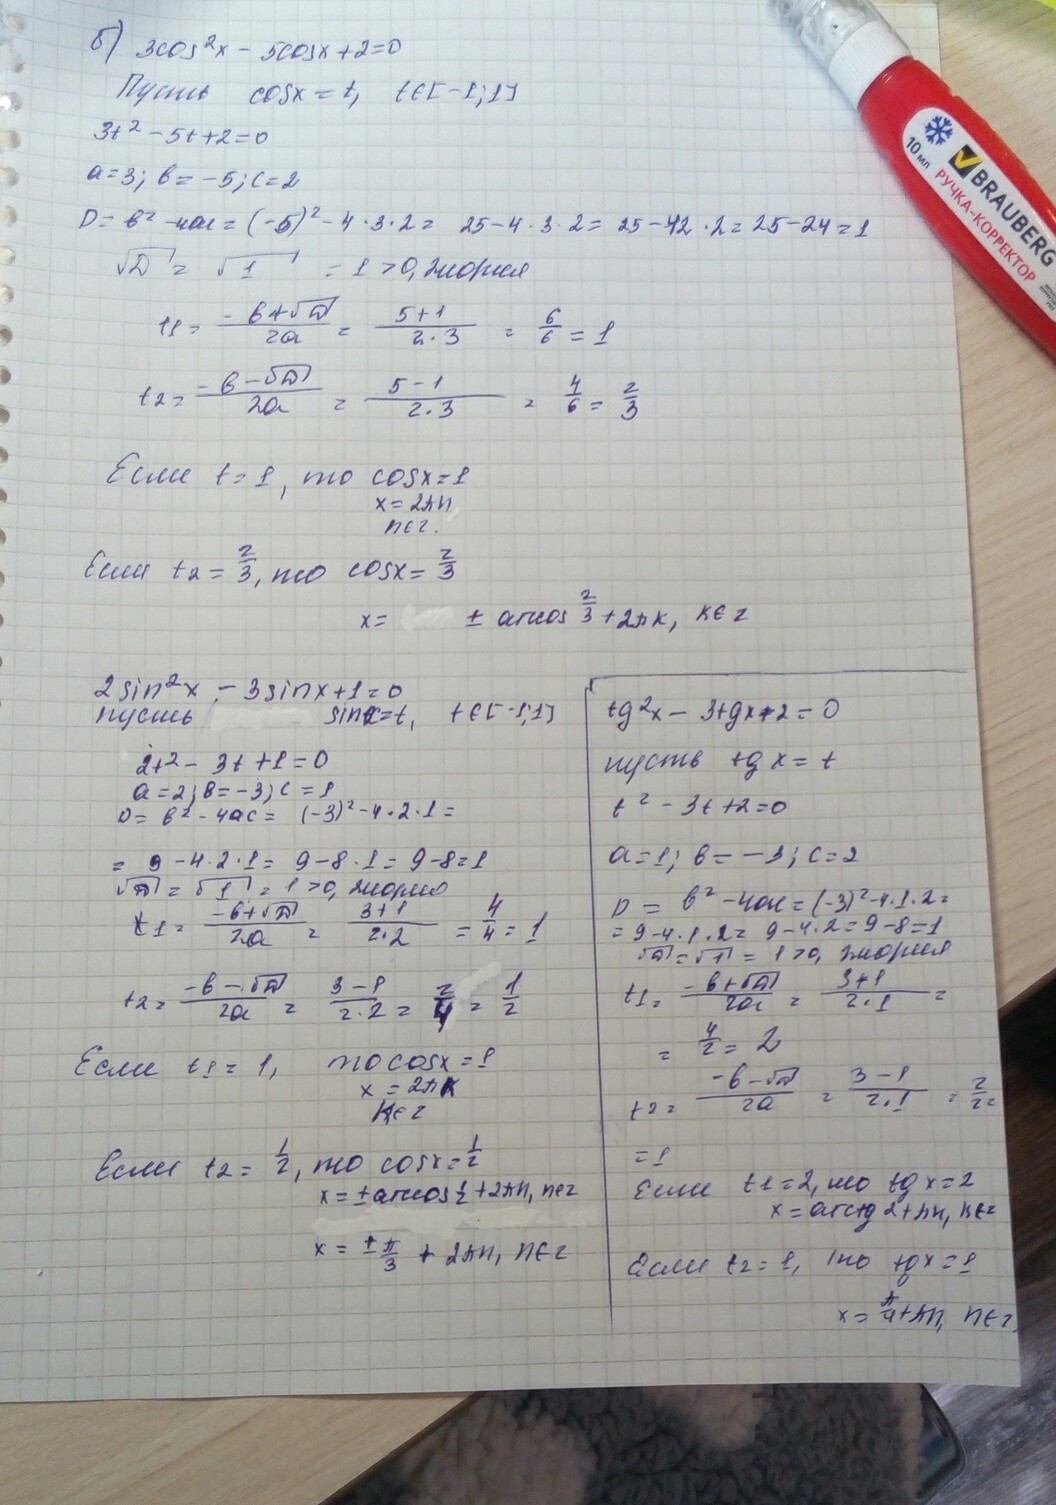 б) 3cos²x - 5cosx + 2 = 0
Пусть cosx = t, t∈[-1;1]
3t² - 5t + 2 = 0
a = 3; в = -5; c = 2
D = в² - 4ac = (-5)² - 4·3·2 = 25 - 4·3·2 = 25 - 12·2 = 25 - 24 = 1
√D = √1 = 1 > 0, 2корня
t1 = (-в+√D)/2a = (5+1)/(2·3) = 6/6 = 1
t2 = (-в-√D)/2a = (5-1)/(2·3) = 4/6 = 2/3
Если t = 1, то cosx = 1
x = 2πn
n∈z.
Если t2 = 2/3, то cosx = 2/3
x = ± arccos 2/3 + 2πk, k∈z
2sin²x - 3sinx + 1 = 0
пусть sinx = t, t∈[-1;1]
2t² - 3t + 1 = 0
a = 2; в = -3; c = 1
D = в² - 4ac = (-3)² - 4·2·1 =
= 9 - 4·2·1 = 9 - 8·1 = 9 - 8 = 1
√D = √1 = 1 > 0, 2корня
t1 = (-в+√D)/2a = (3+1)/(2·2) = 4/4 = 1
t2 = (-в-√D)/2a = (3-1)/(2·2) = 2/4 = 1/2
Если t1 = 1, то cosx = 1
x = 2πk
k∈z
Если t2 = 1/2, то cosx = 1/2
x = ± arccos 1/2 + 2πn, n∈z
x = ± π/3 + 2πn, n∈z
tg²x - 3tgx + 2 = 0
пусть tg x = t
t² - 3t + 2 = 0
a = 1; в = -3; c = 2
D = в² - 4ac = (-3)² - 4·1·2 =
= 9 - 4·1·2 = 9 - 4·2 = 9 - 8 = 1
√D = √1 = 1 > 0, 2корня
t1 = (-в+√D)/2a = (3+1)/(2·1) =
= 4/2 = 2
t2 = (-в-√D)/2a = (3-1)/(2·1) = 2/2 =
= 1
Если t1 = 2, то tg x = 2
x = arctg 2 + πn, n∈z
Если t2 = 1, то tgx = 1
x = π/4 + πn, n∈z.
10 мл
BRAUBERG
РУЧКА-КОРРЕКТОР